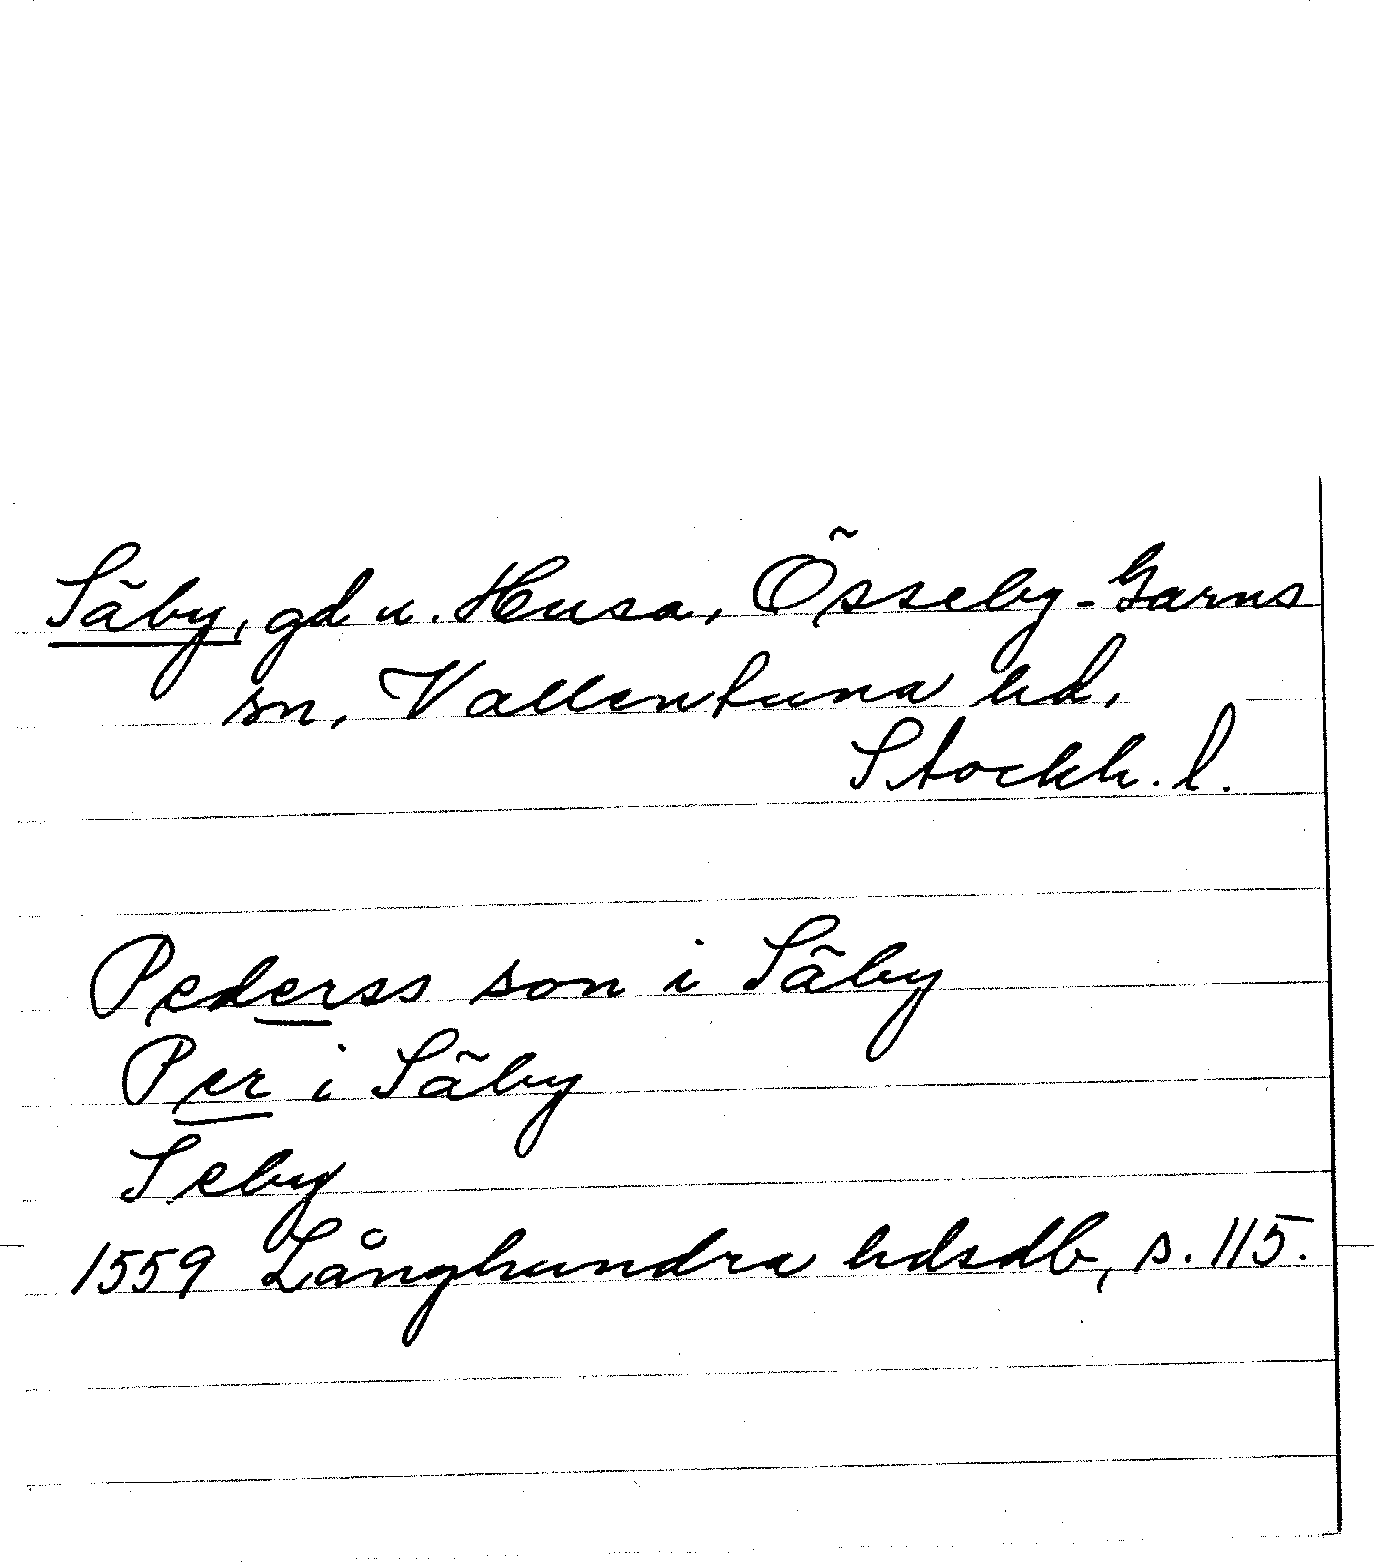 Säby, gd u. Husa, Össeby-Garns
sn, Vallentuna hd,
Stockh. l.
Pederss son i Säby
Per i Säby
Seby
1559 Långhundra hdsdb, s. 115.